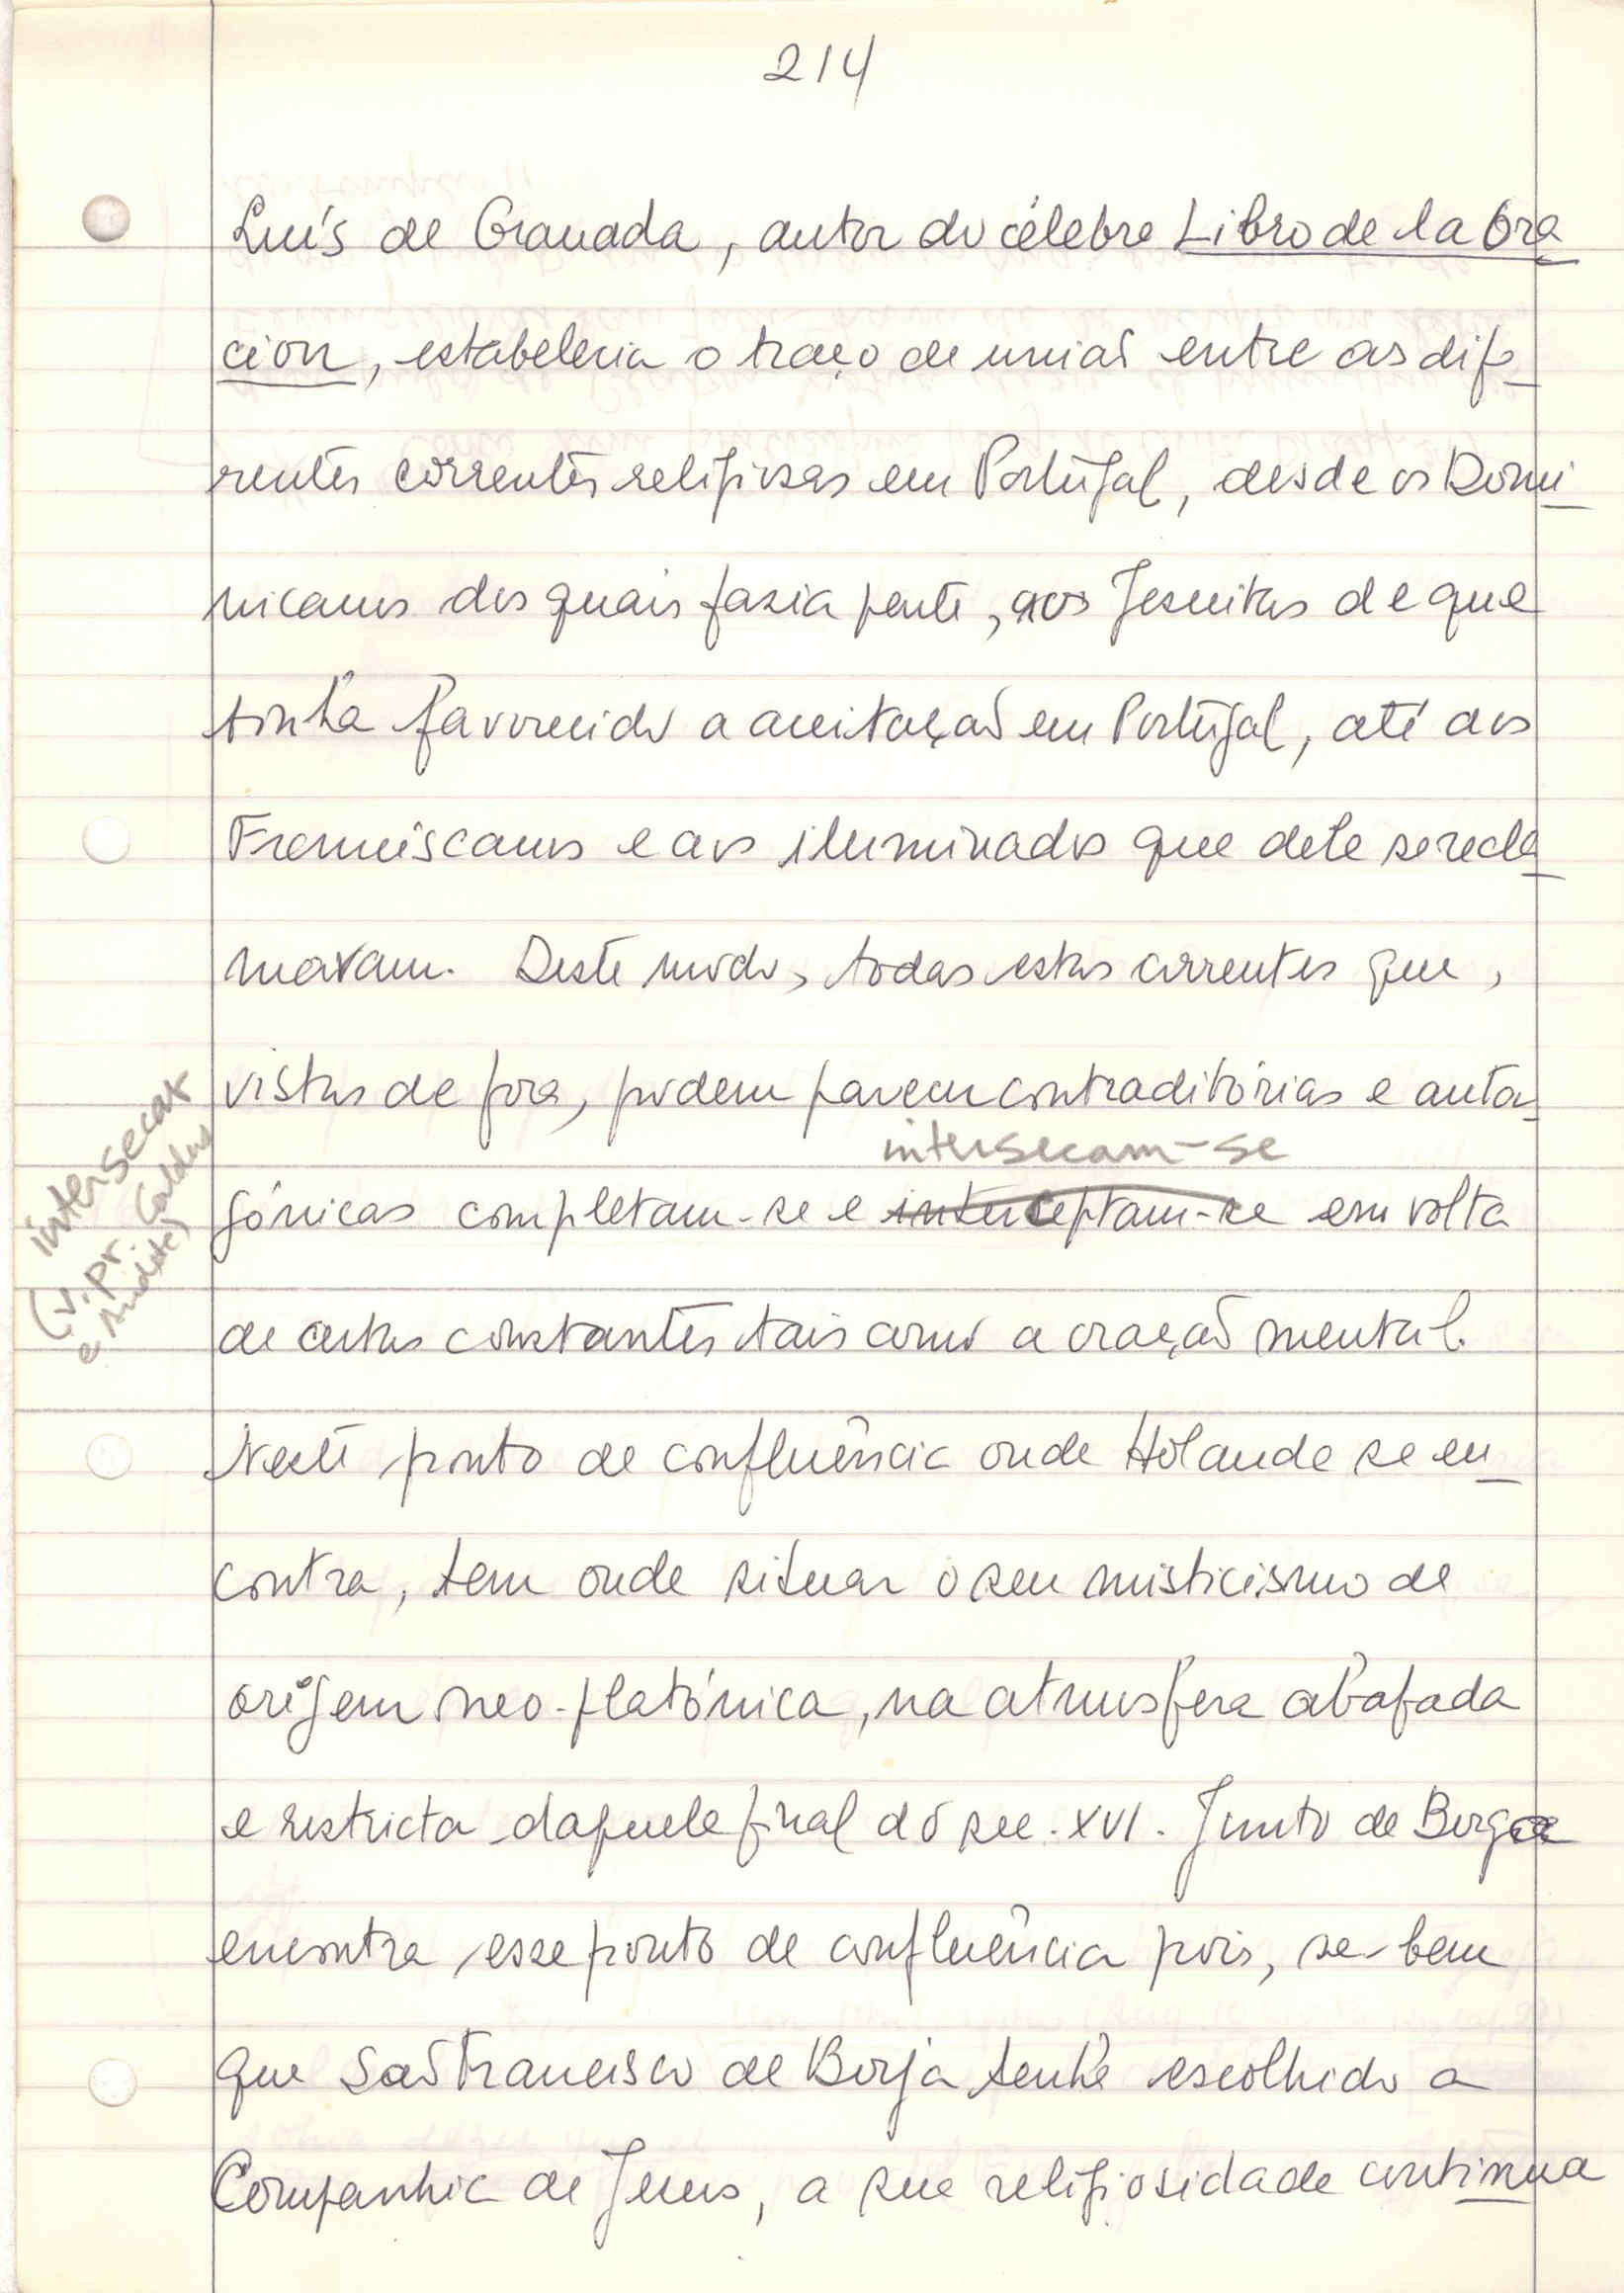 214
Luís de Granada, autor do célebre Libro de la Ora
cion, estabelecia o traço de união entre as dife
rentes correntes religiosas em Portugal, desde os Domi
nicanos dos quais fazia parte, aos Jesuitas de que
tinha favorecido a aceitação em Portugal, até aos
Franciscanos e aos iluminados que dele se recla
mavam. Deste modo, todas estas correntes que,
vistas de fora, podem parecer contraditórias e anta
intersecam-se
gónicas completam-se e interceptam-se em volta
de certas constantes tais como a oração mental.
intersecar
(v. pr. Caldas
e Audete)
Neste ponto de confluência onde Holanda se en
contra, tem onde situar o seu misticismo de
origem neo-platónica, na atmosfera abafada
e restricta daquele final do séc. XVI. Junto de Borja
encontra esse ponto de confluência pois, se-bem
que São Francisco de Borja tenha escolhido a
Companhia de Jesus, a sua religiosidade continua